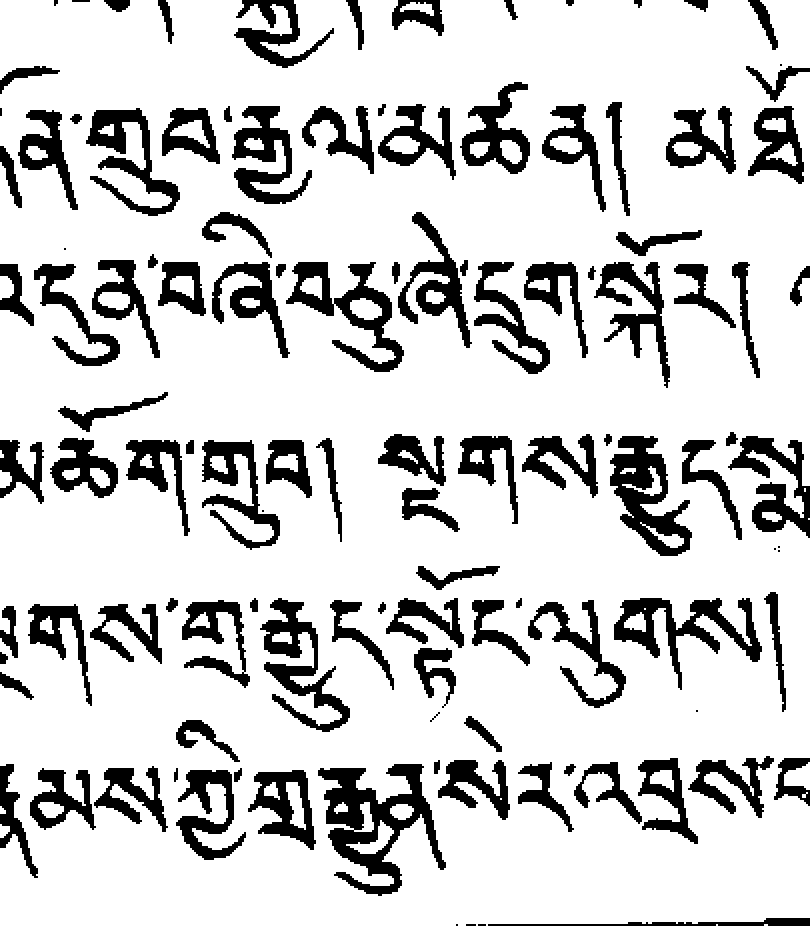 ོན་གྲུབ་རྒྱལ་མཚན། མཐོ
དུན་བཞི་བཅུ་ཞེ་དྲུག་སྐོར།
མཆོག་གྲུབ། སྔགས་རྒྱུད་སྨ
སྔགས་གྲ་རྒྱུད་སྟོད་ལུགས།
རྣམས་ཀྱི་གྲ་རྒྱུན་སེར་འབྲས་ད